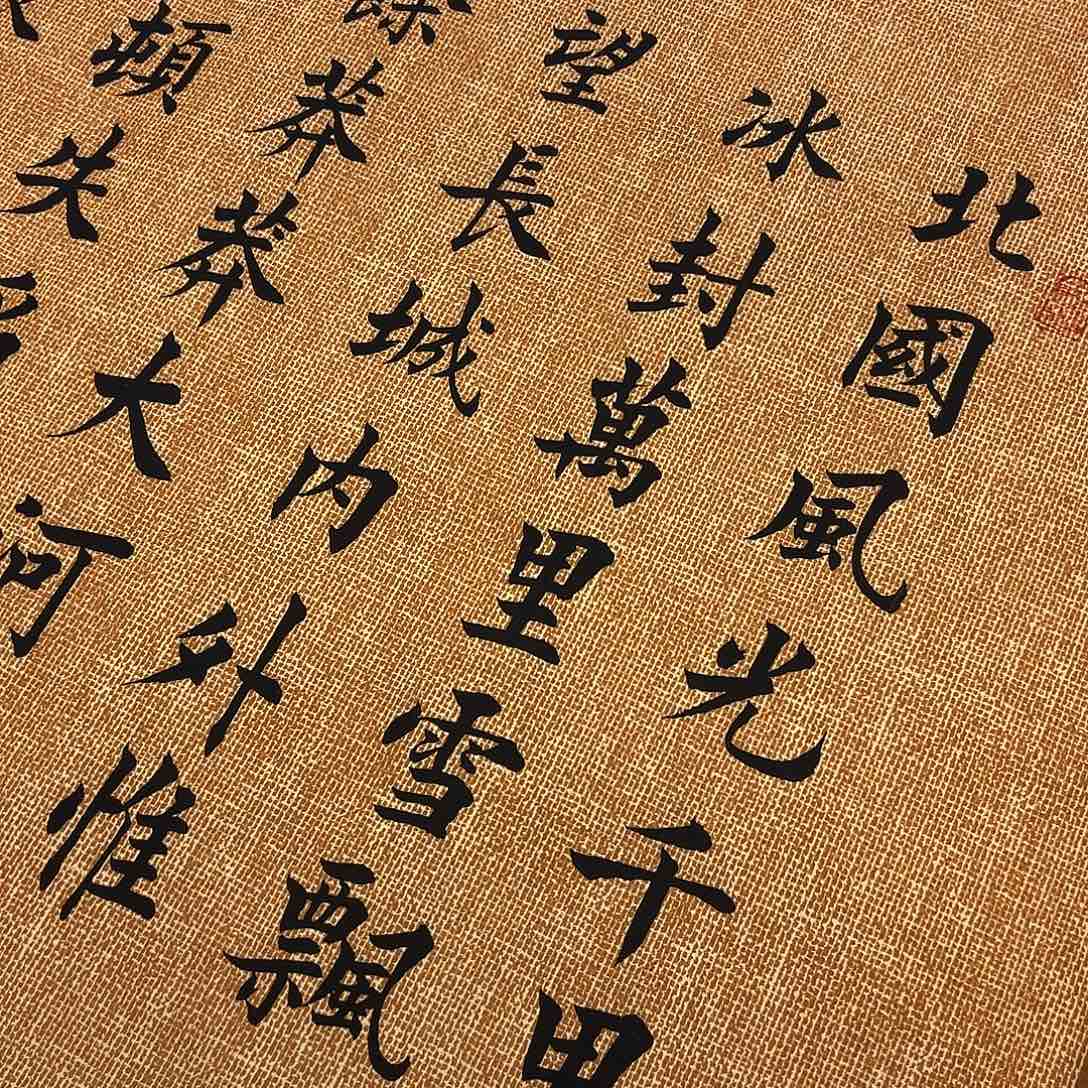 北國風光千里
冰封萬里雪飄
望長城内外惟
餘莽莽大河
頓失